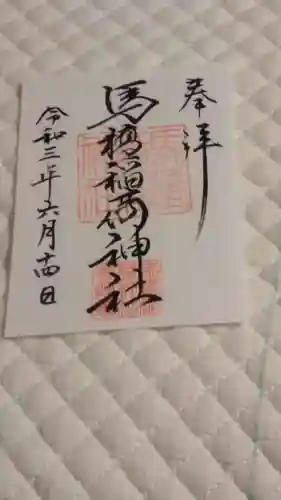 奉拝
馬橋稲荷神社
令和三年六月十四日